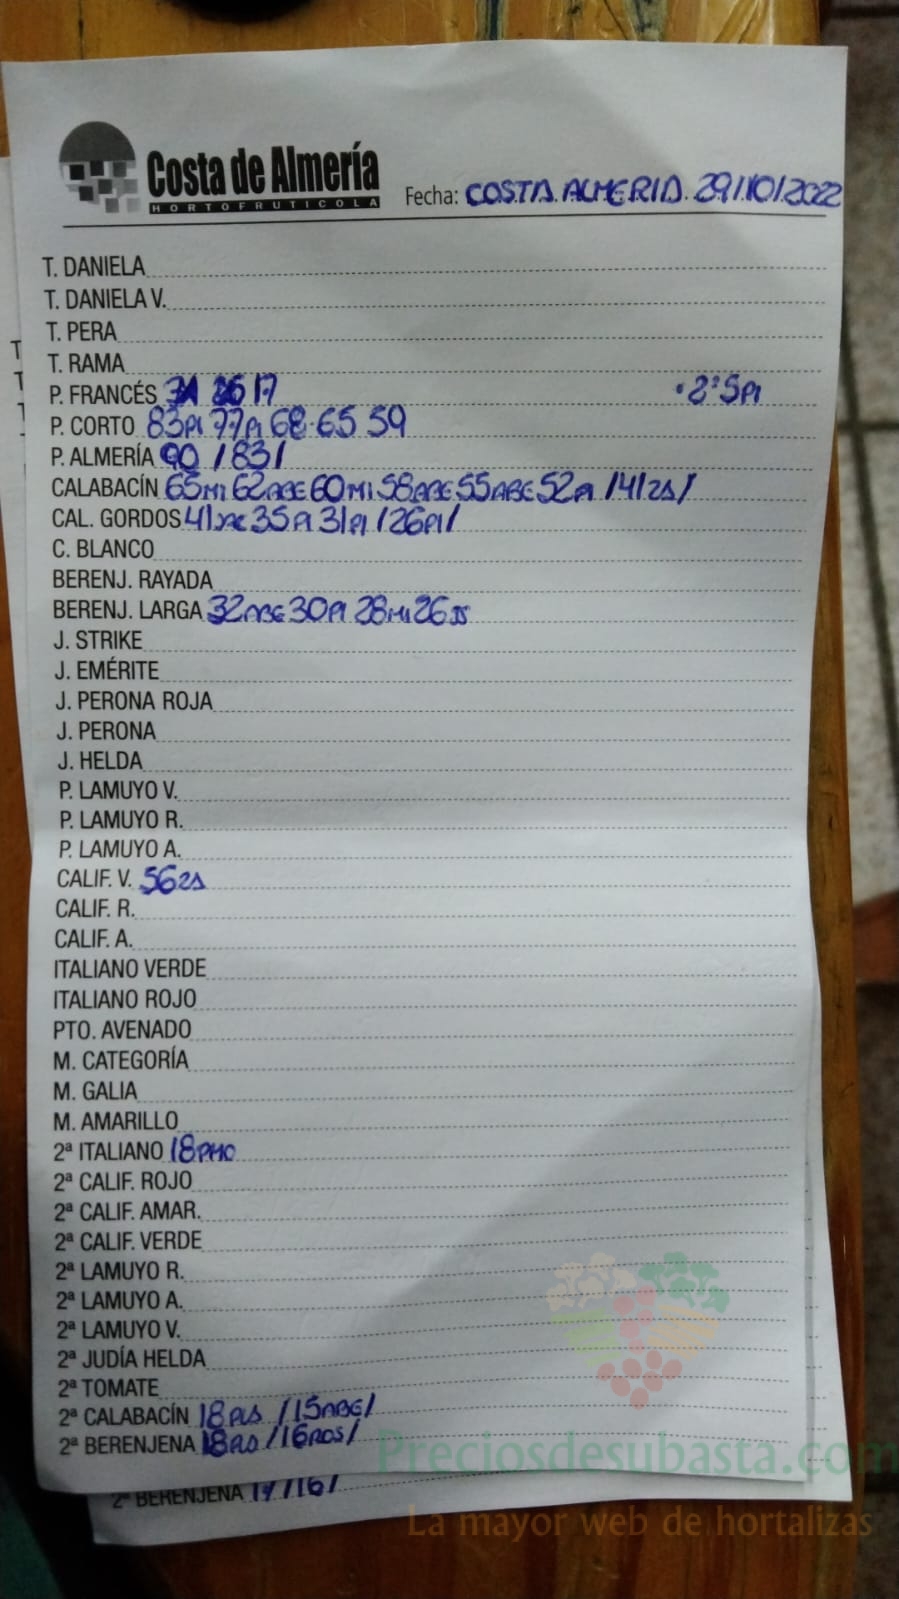 Costa de Almería
HORTOFRUTICOLA
Fecha: COSTA ALMERIA 29/10/2022
T. DANIELA
T. DANIELA V.
T. PERA
T. RAMA
P. FRANCÉS 17 2ª 5PI
P. CORTO 83PI 77PI 68 65 59
P. ALMERÍA 90 /83/
CALABACÍN 65MI 62ABE 60MI 58ABE 55ABE 52PI /41ZA/
CAL. GORDOS 41 35PI 31PI /26PI/
C. BLANCO
BERENJ. RAYADA
BERENJ. LARGA 32ABE 30PI 28MI 26JS
J. STRIKE
J. EMÉRITE
J. PERONA ROJA
J. PERONA
J. HELDA
P. LAMUYO V.
P. LAMUYO R.
P. LAMUYO A.
CALIF. V. 56ZA
CALIF. R.
CALIF. A.
ITALIANO VERDE
ITALIANO ROJO
PTO. AVENADO
M. CATEGORÍA
M. GALIA
M. AMARILLO
2ª ITALIANO 18PMO
2ª CALIF. ROJO
2ª CALIF. AMAR.
2ª CALIF. VERDE
2ª LAMUYO R.
2ª LAMUYO A.
2ª LAMUYO V.
2ª JUDÍA HELDA
2ª TOMATE
2ª CALABACÍN 18PLS /15ABE/
2ª BERENJENA /16ROS/
2ª BERENJENA 17/16/
Preciosdesubasta.com
La mayor web de hortalizas